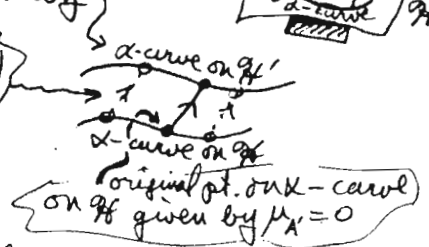 α-curve
α-curve on ℋ'
λ λ λ
α-curve on ℋ
original pt. on α-curve
on ℋ given by μ_A' = 0